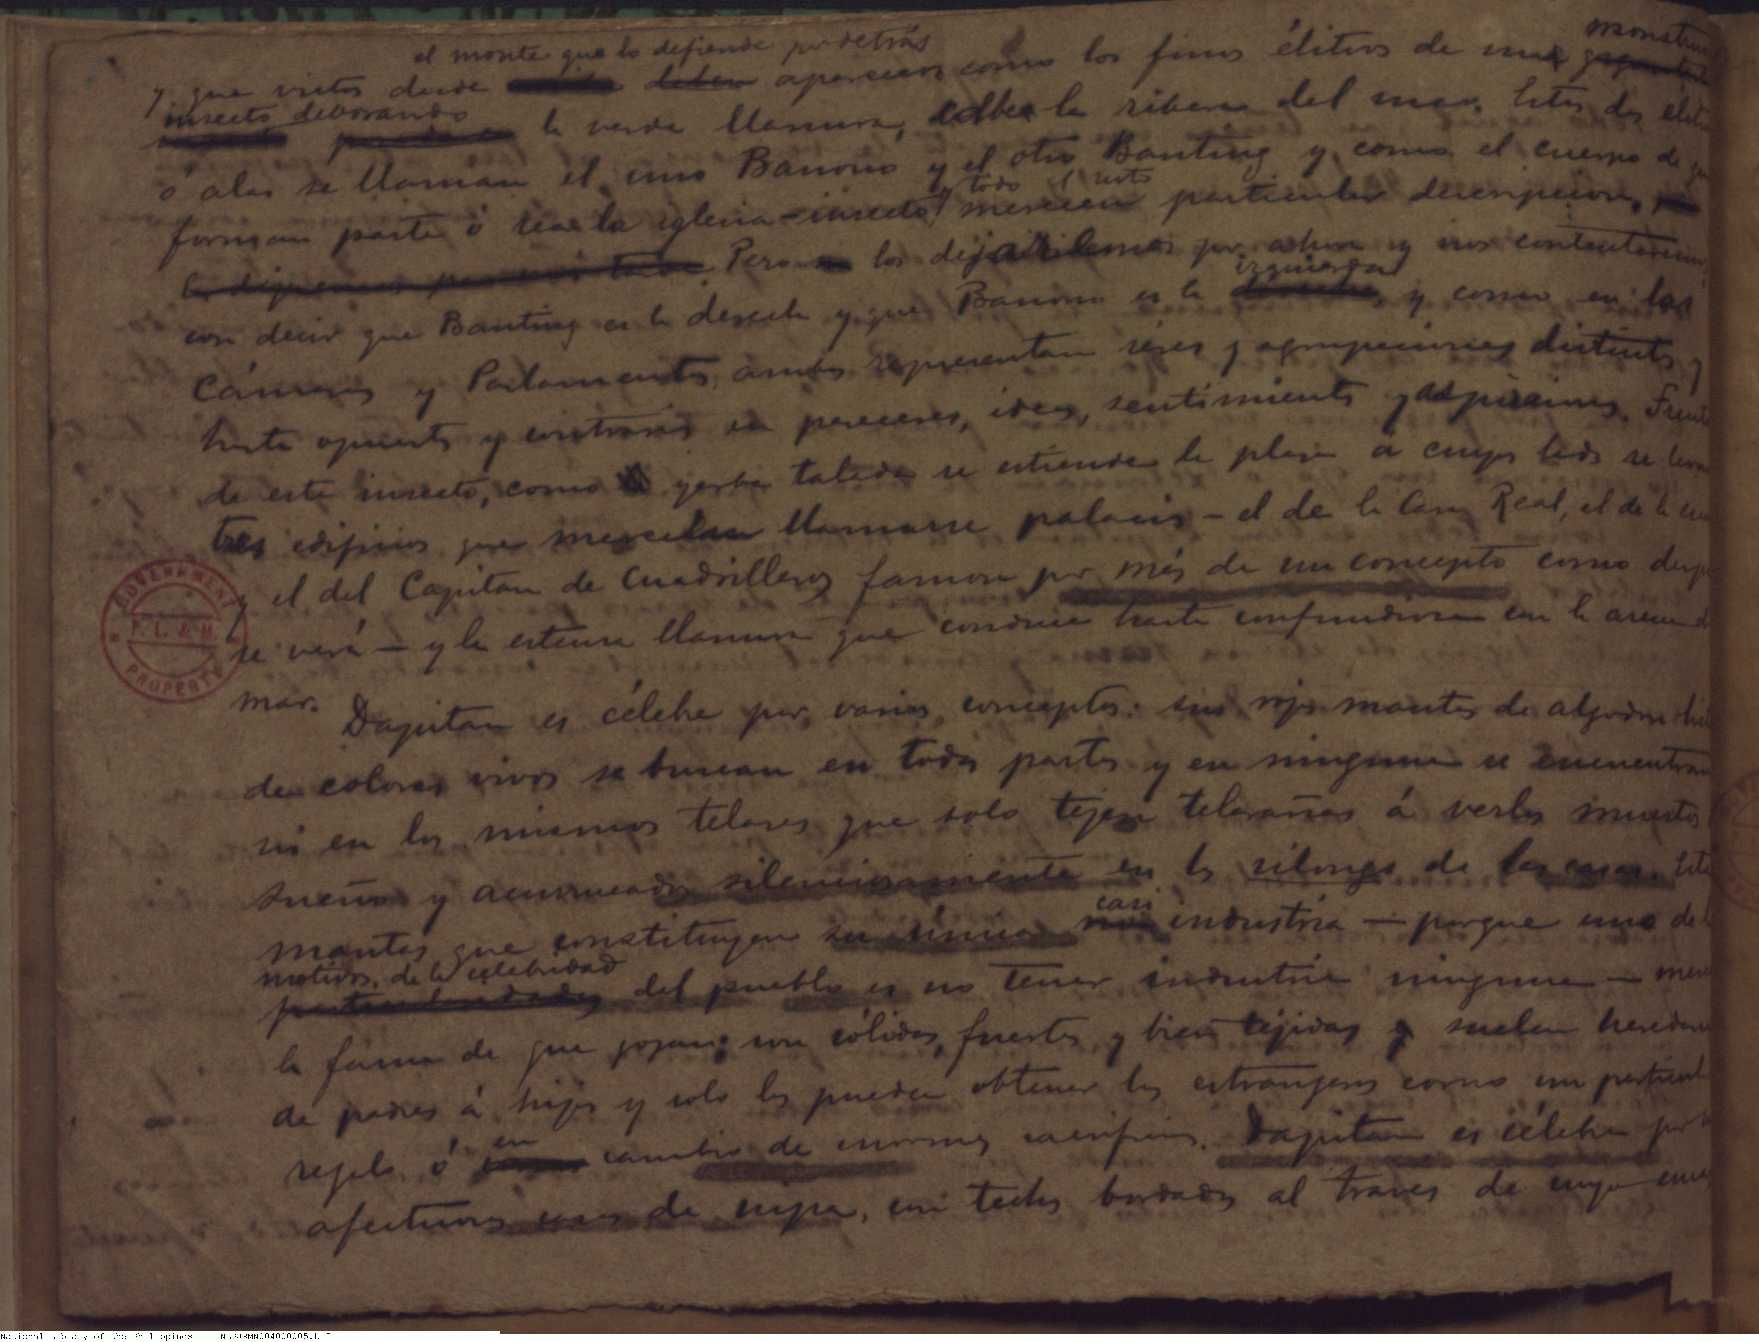 el monte que lo defiende por detrás monstruo
y que vistos desde aparecen como los finos élitros de un
insecto devorando la verde llamura, la ribera del mar. Estos dos élitros
ó alas se llaman el uno Banonó y el otro Banting y como el cuerpo de que
y todo el resto
forman parte ó sea la iglesia-insecto merecen particular descripcion,
Pero los dejaremos por ahora y nos contentaremos
izquierda
con decir que Banting es la derecha y que Banono es la y como en las
Cámaras y Parlamentos, ambas representan séres y agrupaciones distintos y
hasta opuestos y contrarios en pareceres, ideas, sentimientos y aspiraciones. Frente
de este insecto, como yerba talada se estiende la plaza á cuyos lados se
tres edificios que merecen llamarse palacios - el de la Casa Real, el de la
y el del Capitan de Cuadrilleros famoso por más de un concepto como
se verá - y la estensa llamura que conduce hasta confundirse con la arena del
mar.
Dapitan es célebre por varios conceptos: sus rojas mantas de algodon
de colores vivos se buscan en todas partes y en ninguna se encuentran
ni en los mismos telares que solo tejen telarañas á verlos muertos
sueño y acurrucados silenciosamente en los silongs de las casas. Estas
mantas que constituyen su única casi industria - porque uno de los
motivos de la celebridad
del pueblo es no tener industria ninguna -
la fama de que gozan; son sólidas, fuertes y bien tejidas y suelen heredarse
de padres á hijos y solo los pueden obtener los estrangeros como un particular
en
regalo ó cambio de enormes sacrificios. Dapitan es célebre por
afectuosas casas de nipa, con techos bordados al traves de cuyo
GOVERNMENT
P. L. & M.
PROPERTY
National Library of the Philippines